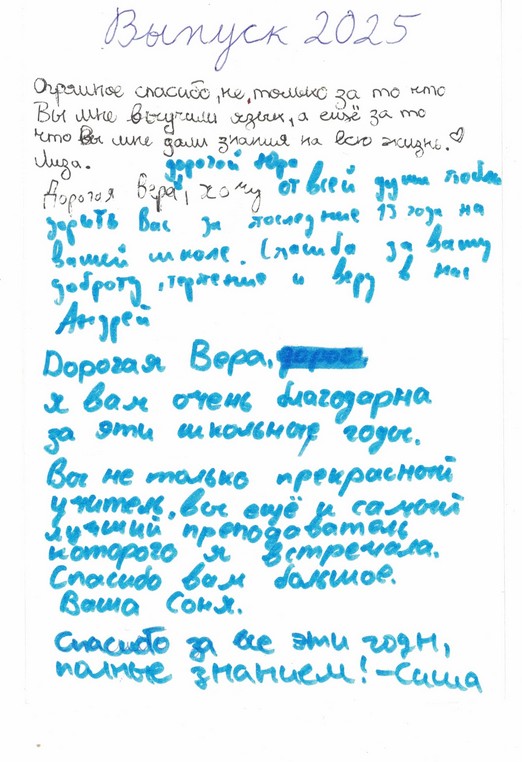 Выпуск 2025
Огромное спасибо, не только за то что
Вы мне выучили язык, а ещё за то
что Вы мне дали знания на всю жизнь. ♡
Лиза.
дорогой Юра
Дорогая Вера, хочу от всей души поблаго
дорыть Вас за последние 13 года на
вашей школе. Спасибо за вашу
доброту, терпения и веру в нас
Андрей
Дорогая Вера,
я вам очень благодарна
за эти школьные годы.
Вы не только прекрасный
учитель, вы ещё и самый
лучший преподаватель
которого я встречала.
Спасибо вам большое.
Ваша Соня.
Спасибо за все эти годы,
полные знанием! -Саша